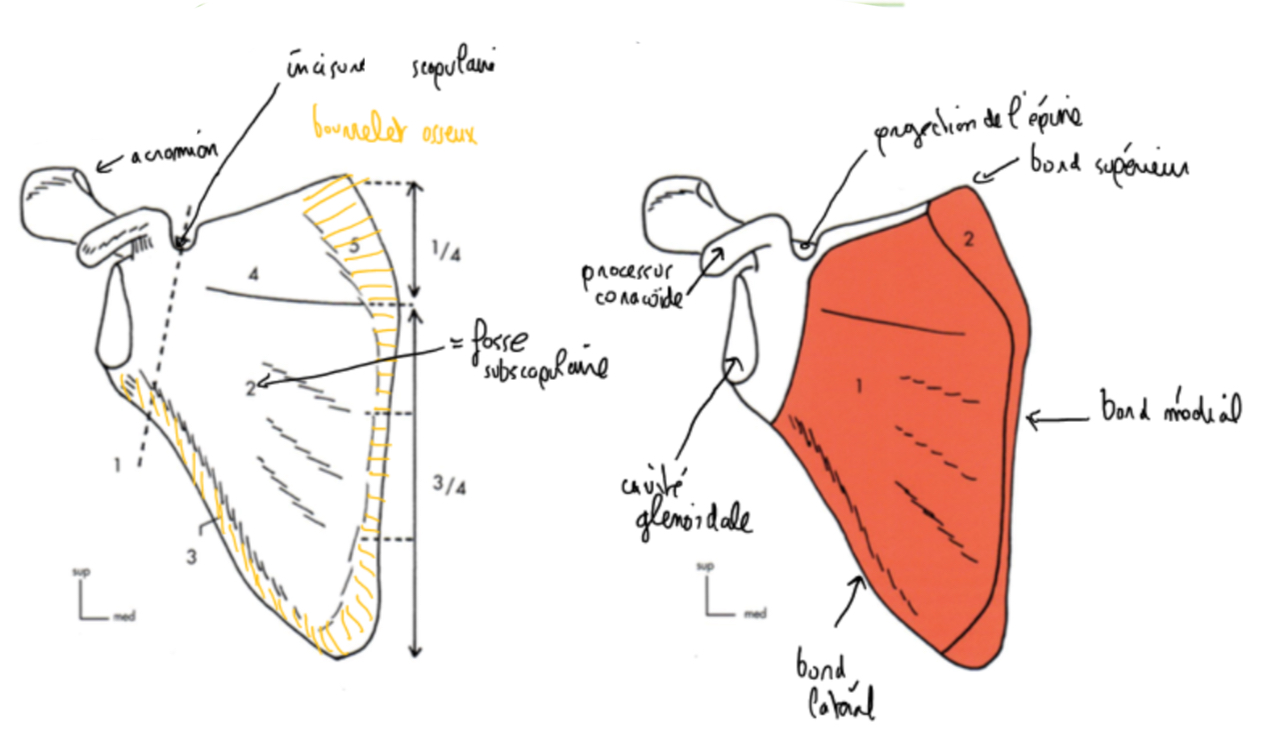 incisure scapulaire
bourrelet osseux
acromion
5
4
1/4
2
= fosse
subscapulaire
1
3/4
3
sup
med
projection de l'épine
bord supérieur
2
processus
coracoïde
1
bord médial
cavité
glénoïdale
sup
med
bord
latéral